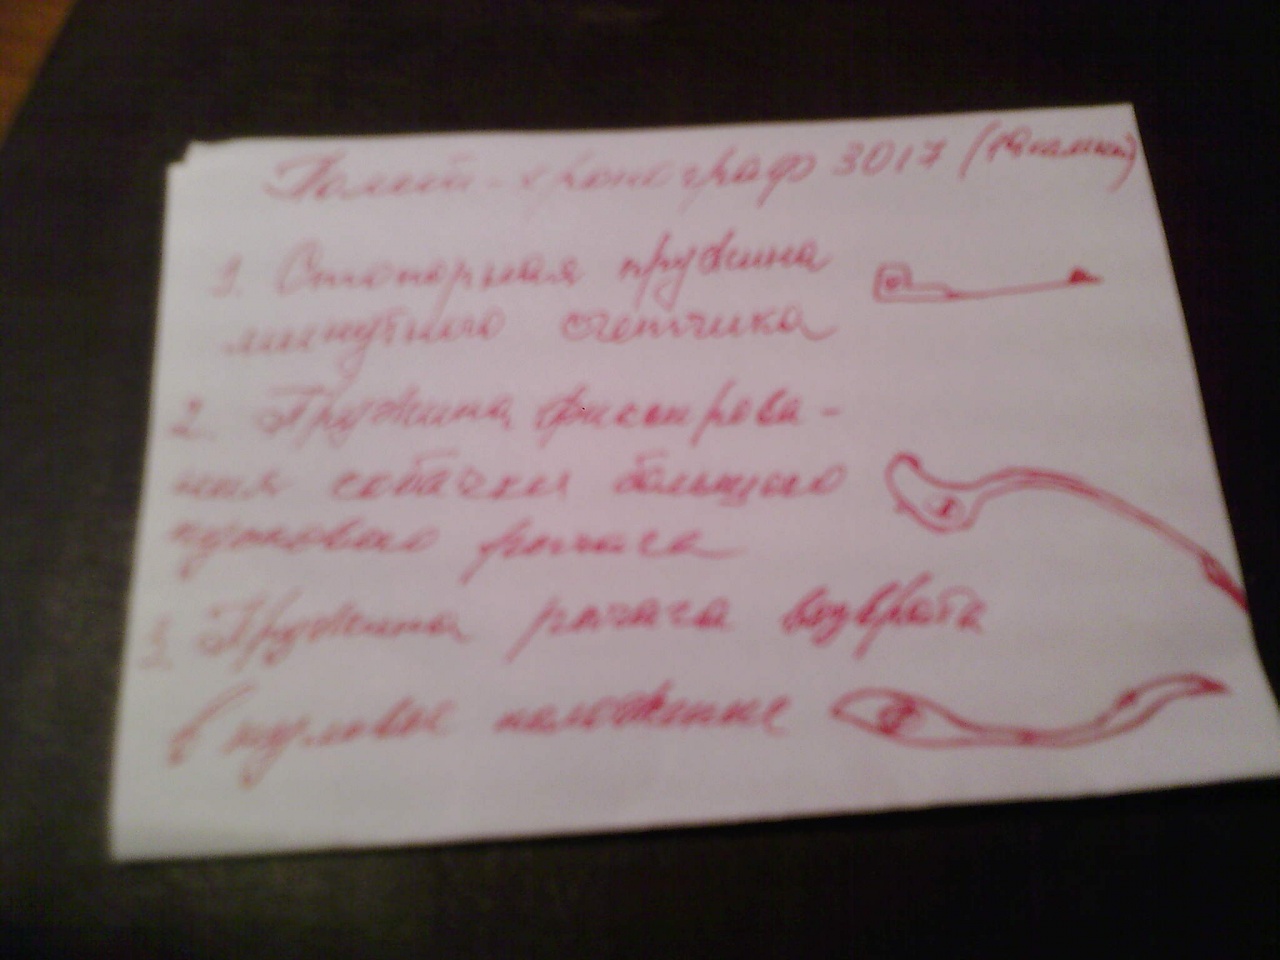 Полет-хронограф 3017 (19 камней)
1. Стопорная пружина
минутного счетчика
2. Пружина фиксирова-
ния собачки большого
пускового рычага
3. Пружина рычага возврата
в нулевое положение